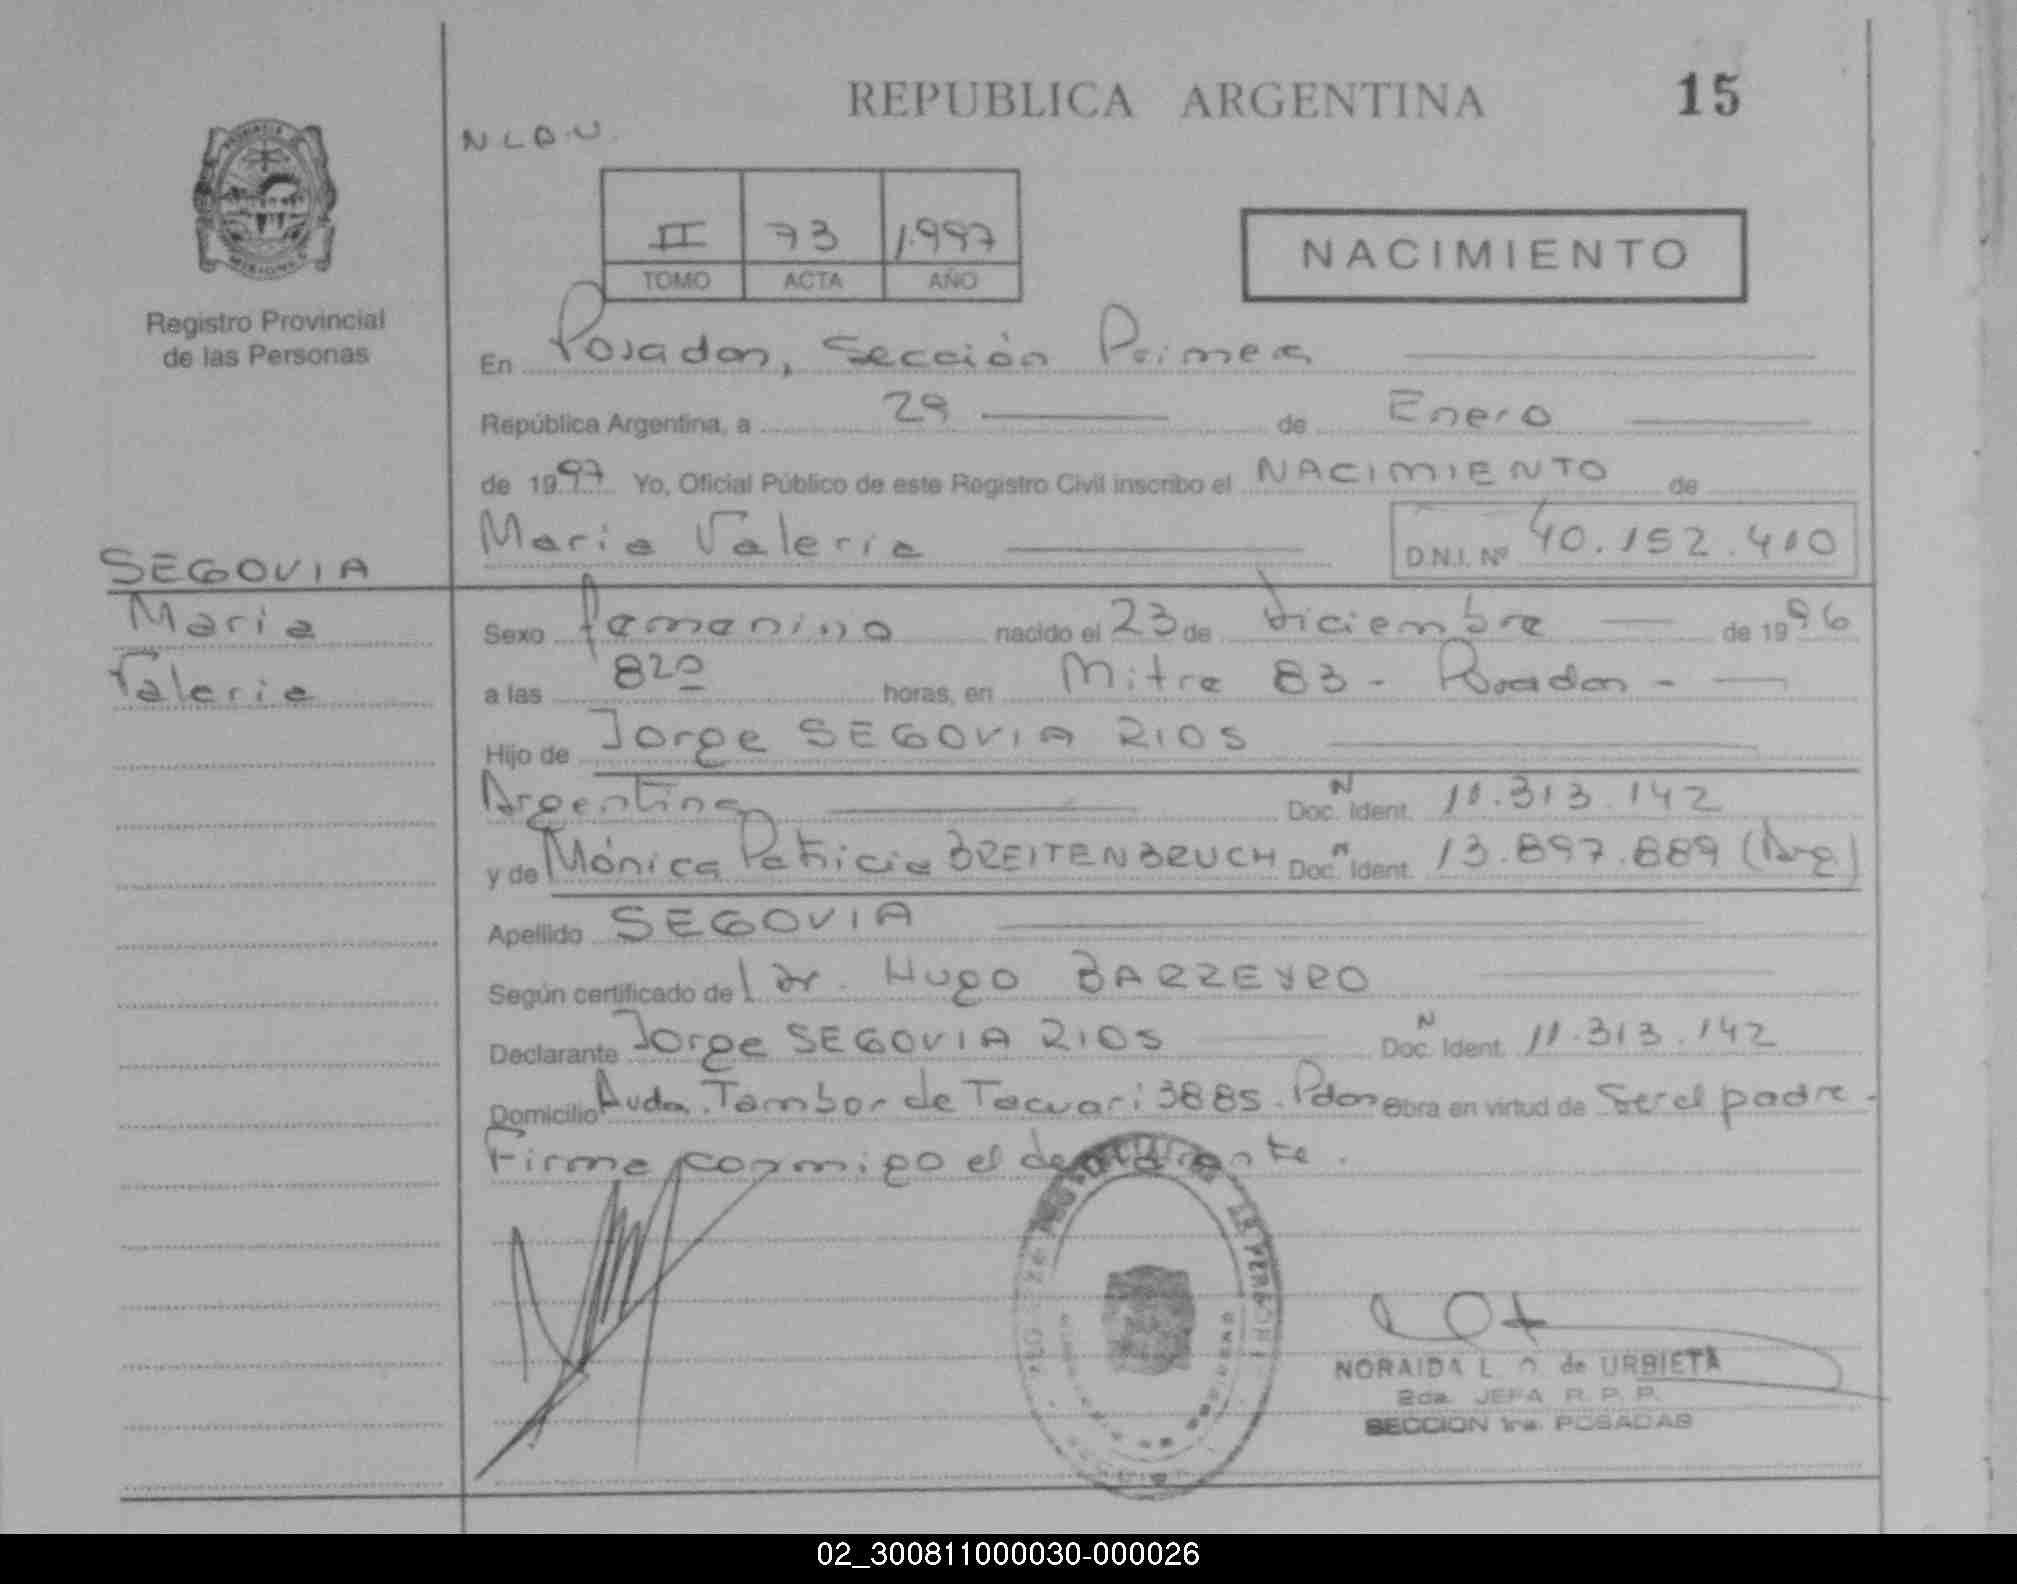 REPUBLICA ARGENTINA 15
N L A U.
II 73 1.997
TOMO ACTA AÑO
NACIMIENTO
Registro Provincial
de las Personas
En Posadas, Sección Primera
República Argentina, a 29 de Enero
de 1997 Yo, Oficial Público de este Registro Civil inscribo el NACIMIENTO de
María Valeria D.N.I. Nº 40.152.410
SEGOVIA
María
Valeria
Sexo femenino nacido el 23 de diciembre de 1996
a las 820 horas, en Mitre 83 - Posadas -
Hijo de Jorge SEGOVIA RIOS
Argentina Doc. N Ident. 11.313.142
y de Mónica Patricia BREITENBRUCH Doc. N Ident. 13.897.889 (Arg)
Apellido SEGOVIA
Según certificado del dr. Hugo BARREYRO
Declarante Jorge SEGOVIA RIOS Doc. N Ident. 11.313.142
Domicilio Avda. Tambor de Tacuarí 3885. Pdas Obra en virtud de Ser el padre.
Firma conmigo el declarante.
NORAIDA L. de URBIETA
2da. JEFA R. P. P.
SECCION 1ra. POSADAS
02_300811000030-000026